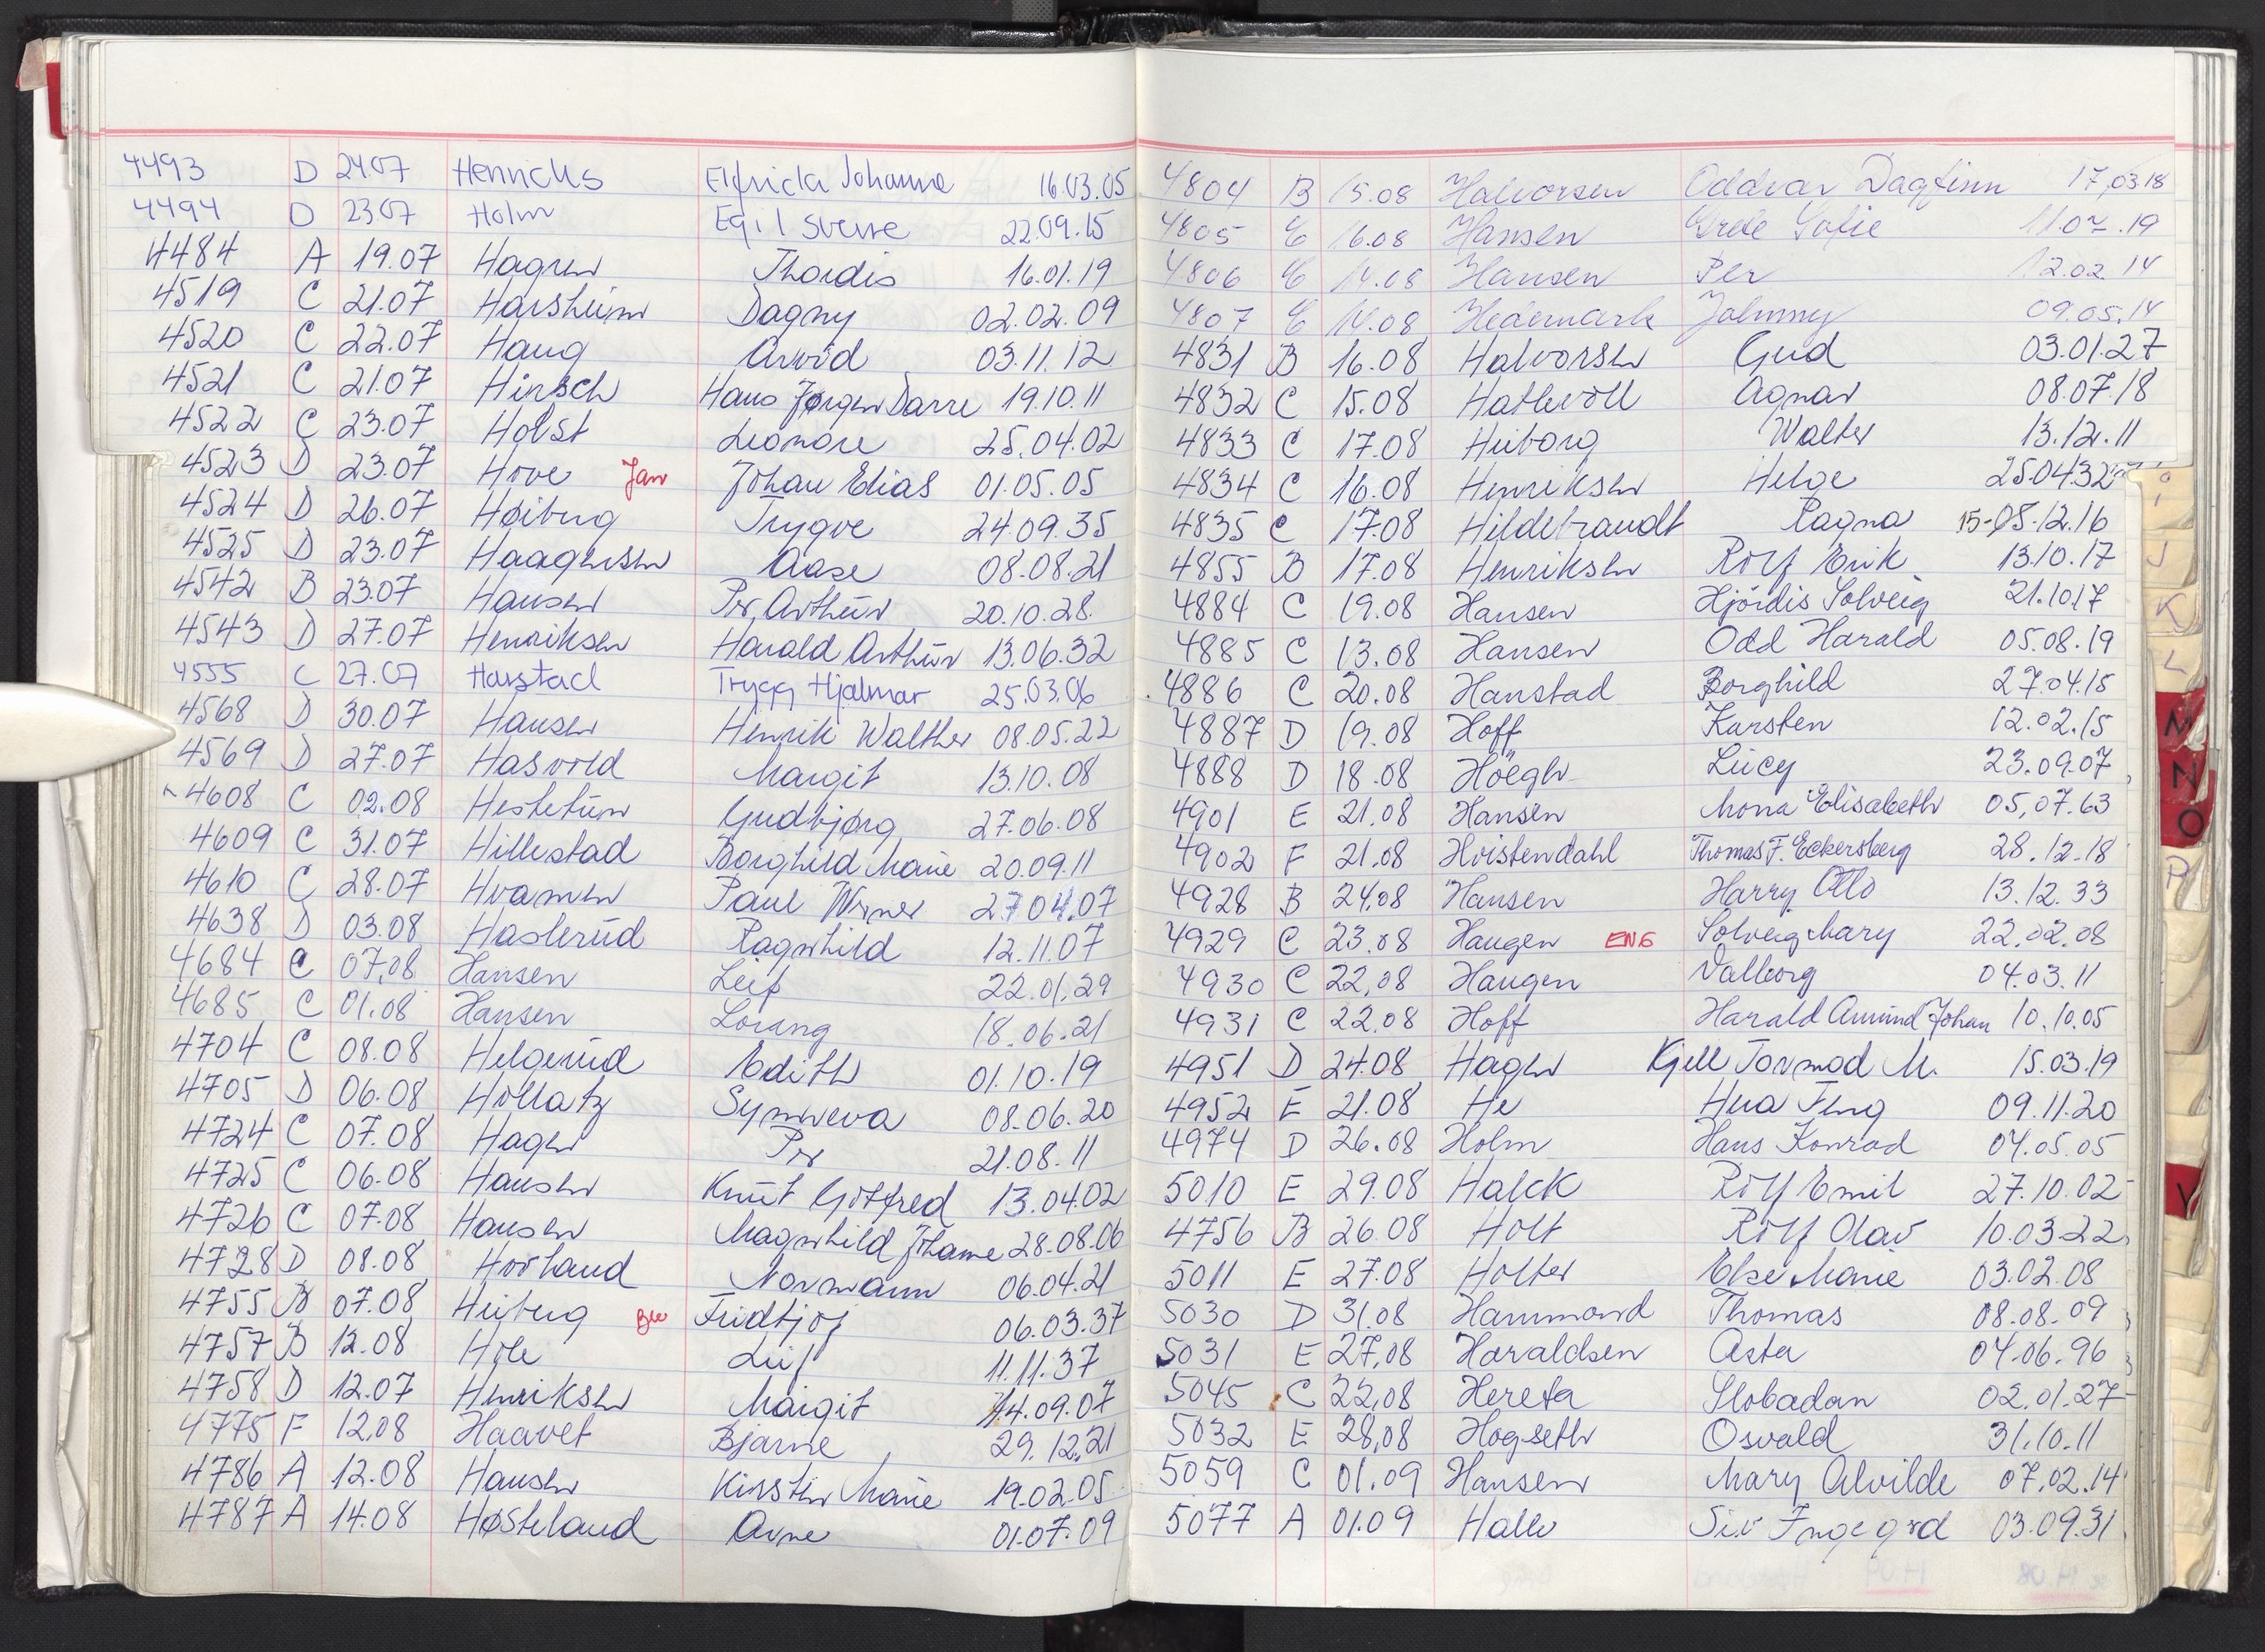 4493 D 24.07 Henrichs Elfrida Johanne 16.03.05
4494 D 23.07 Holm Egil Sverre 22.09.15
4484 A 19.07 Hagen Thordis 16.01.19
4519 C 21.07 Harsheim Dagny 02.02.09
4520 C 22.07 Haug Arvid 03.11.12
4521 C 21.07 Hirsch Hans Jørgen Darre 19.10.11
4522 C 23.07 Holst Leonore 25.04.02
4523 D 23.07 Hove Jan Johan Elias 01.05.05
4524 D 26.07 Høiberg Trygve 24.09.35
4525 D 23.07 Haagensen Aase 08.08.21
4542 B 23.07 Hansen Per Arthur 20.10.28.
4543 D 27.07 Henriksen Harald Arthur 13.06.32
4555 C 27.07 Harstad Trygg Hjalmar 25.03.06
4568 D 30.07 Hansen Henrik Walther 08.05.22
4569 D 27.07 Hasvold Margit 13.10.08
4608 C 02.08 Hestetun Gudbjørg 27.06.08
4609 C 31.07 Hillestad Borghild Marie 20.09.11
4610 C 28.07 Hvamen Paul Werner 27.04.07
4638 D 03.08 Haslerud Ragnhild 12.11.07
4684 C 07.08 Hansen Leif 22.01.29
4685 C 01.08 Hansen Lorang 18.06.21
4704 C 08.08 Helgerud Edith 01.10.19
4705 D 06.08 Hollatz Synneva 08.06.20
4724 C 07.08 Hagen Per 21.08.11
4725 C 06.08 Hansen Knut Gotfred 13.04.02
4726 C 07.08 Hansen Magnhild Johanne 28.08.06
4728 D 08.08 Hovland Normann 06.04.21
4755 B 07.08 Heiberg Fridtjof 06.03.37
4757 B 12.08 Hole Leif 11.11.37
4758 D 12.07 Henriksen Margit 14.09.07
4775 F 12.08 Haavet Bjarne 29.12.21
4786 A 12.08 Hansen Kirsten Marie 19.02.05
4787 A 14.08 Høsteland Arne 01.07.09
4804 B 15.08 Halvorsen Oddvar Dagfinn 17.03.18
4805 E 16.08 Hansen Grete Sofie 11.07.19
4806 E 14.08 Hansen Per 12.02.14
4807 E 14.08 Hedemark Johnny 09.05.14
4831 B 16.08 Halvorsen Gud 03.01.27
4832 C 15.08 Hatlevoll Agnar 08.07.18
4833 C 17.08 Heiborg Walter 13.12.11
4834 C 16.08 Henriksen Helge 25.04.32
4835 C 17.08 Hildebrandt Ragna 15-05.12.16
4855 B 17.08 Henriksen Rolf Erik 13.10.17
4884 C 19.08 Hansen Hjördis Solveig 21.10.17
4885 C 13.08 Hansen Odd Harald 05.08.19
4886 C 20.08 Hanstad Borghild 27.04.15
4887 D 19.08 Hoff Karsten 12.02.15
4888 D 18.08 Höegh Lucy 23.09.07
4901 E 21.08 Hansen Mona Elisabeth 05.07.63
4902 F 21.08 Hvistendahl Thomas F. Eckersberg 28.12.18
4928 B 24.08 Hansen Harry Otto 13.12.33
4929 C 23.08 Haugen ENG Solveig Mary 22.02.08
4930 C 22.08 Haugen Valborg 04.03.11
4931 C 22.08 Hoff Harald Amund Johan 10.10.05
4951 D 24.08 Hagen Kjell Tormod M. 15.03.19
4952 E 21.08 He Hua Feng 09.11.20
4974 D 26.08 Holm Hans Konrad 04.05.05
5010 E 29.08 Halck Rolf Emil 27.10.02
4756 B 26.08 Holt Rolf Olav 10.03.22
5011 E 27.08 Holter Else Marie 03.02.08
5030 D 31.08 Hammond Thomas 08.08.09
5031 E 27.08 Haraldsen Asta 04.06.96
5045 C 22.08 Hereta Slobadan 02.01.27
5032 E 28.08 Hogseth Osvald 31.10.11
5059 C 01.09 Hansen Mary Alvilde 07.02.14
5077 A 01.09 Halle Siv Ingegerd 03.09.31
I
J
K
L
M
N
O
P
V